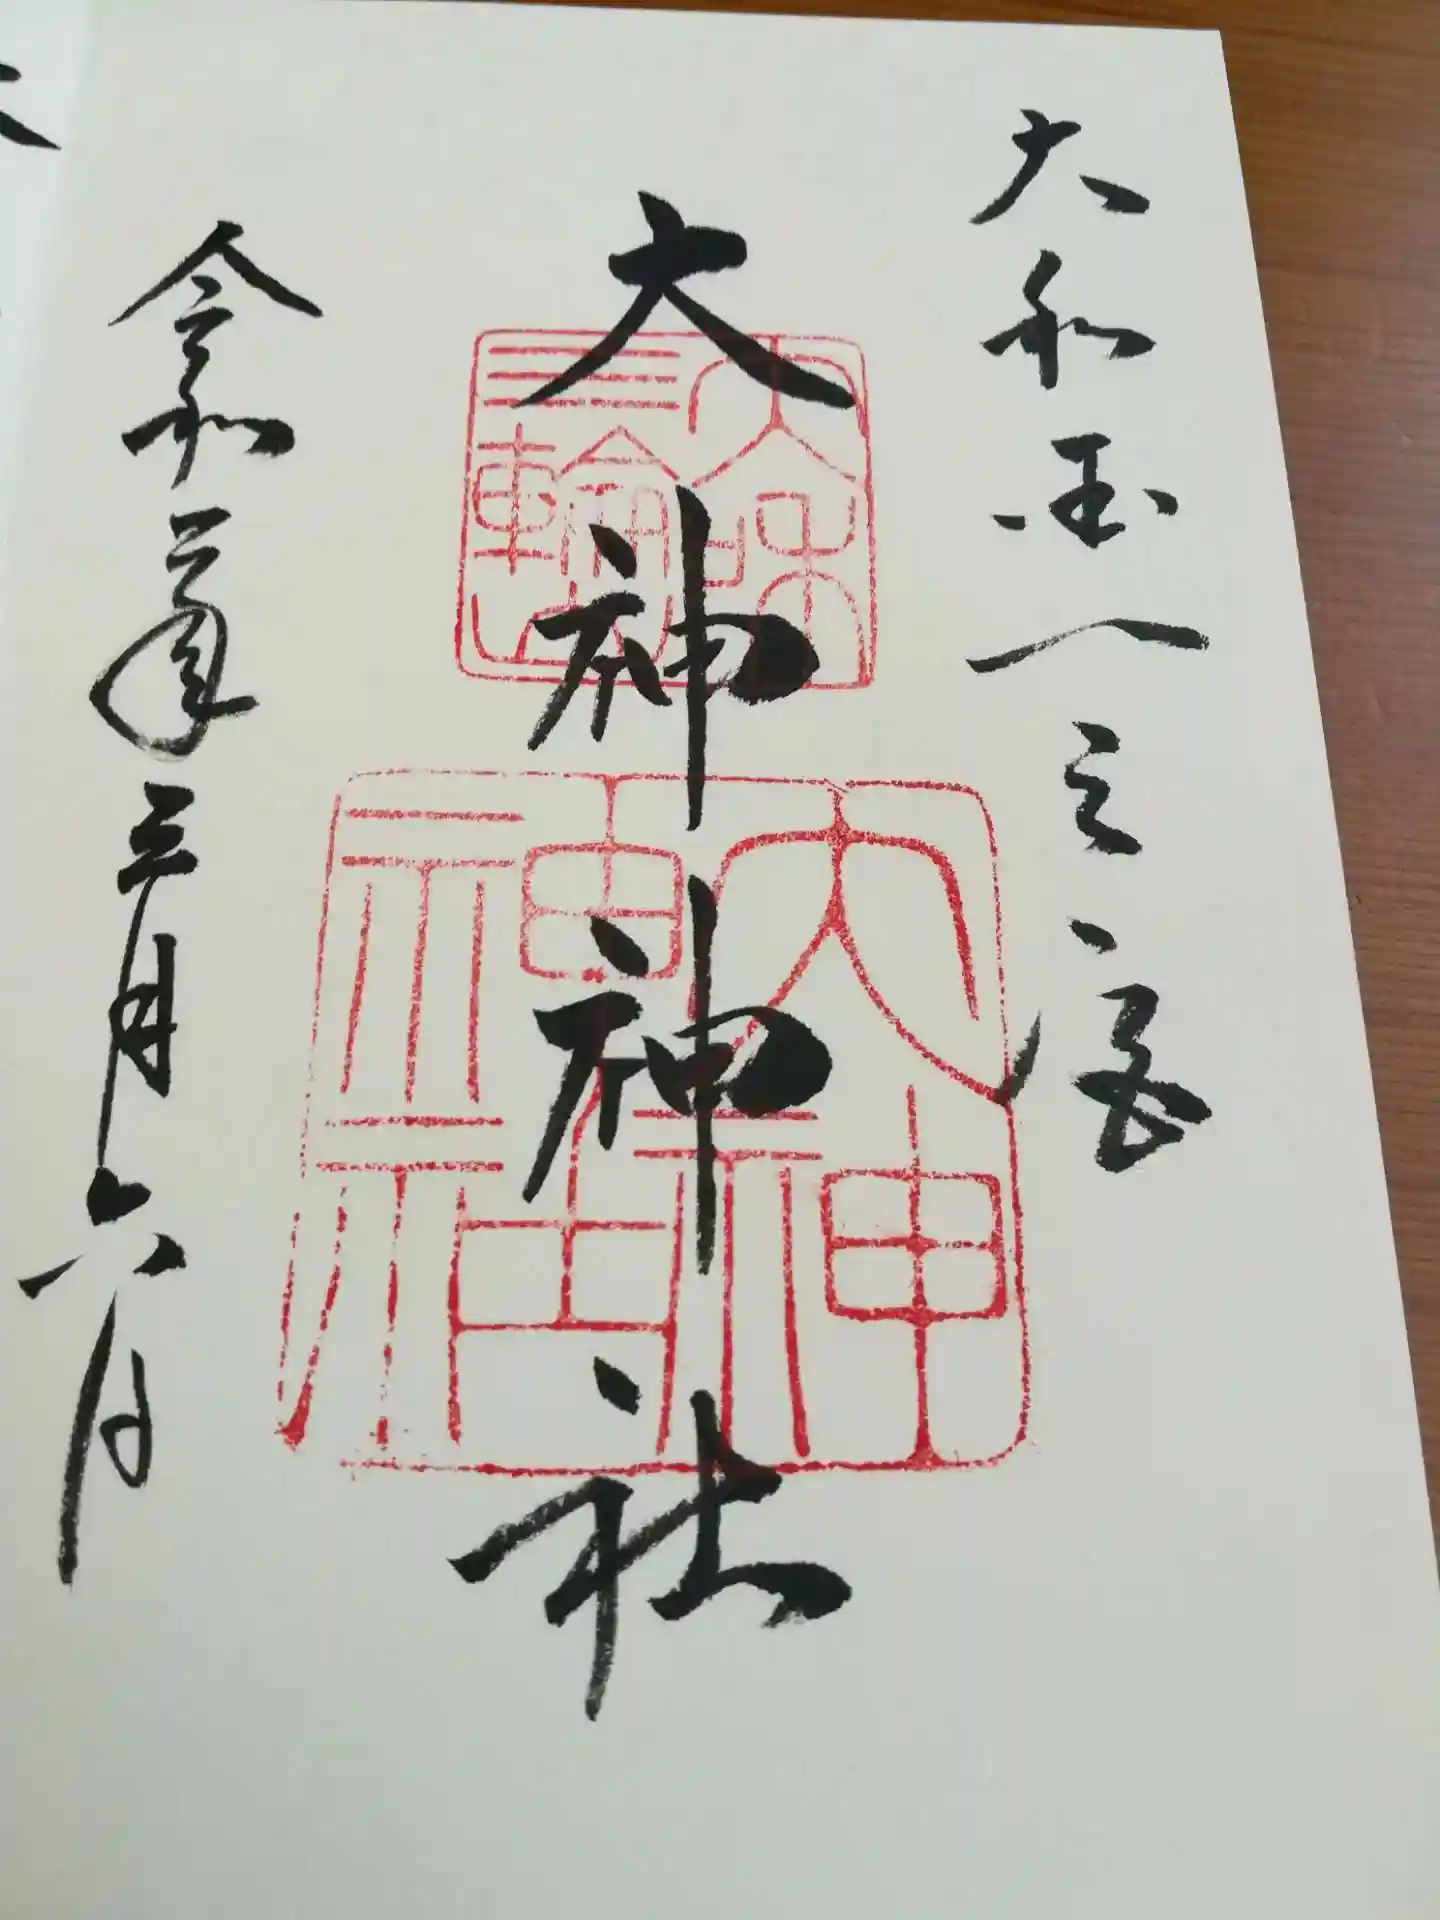 大和国一之宮
大神神社
令和二年三月六日
大神
神社